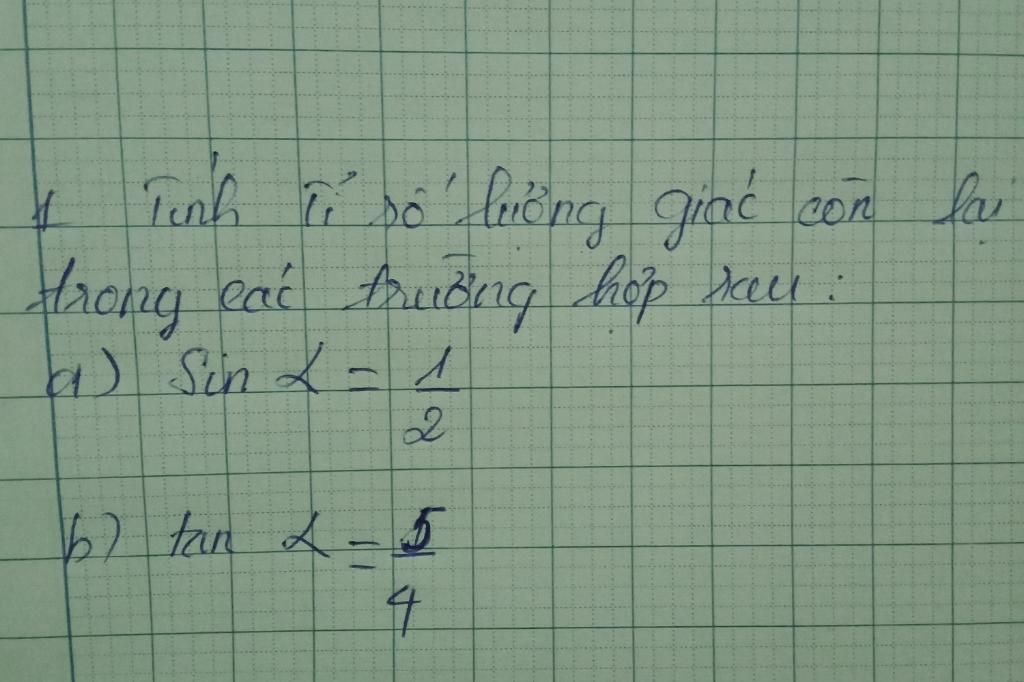 1 Tính Tỉ số lượng giác còn lại
trong các trường hợp sau :
a) Sin α = 1/2
b) tan α = 5/4